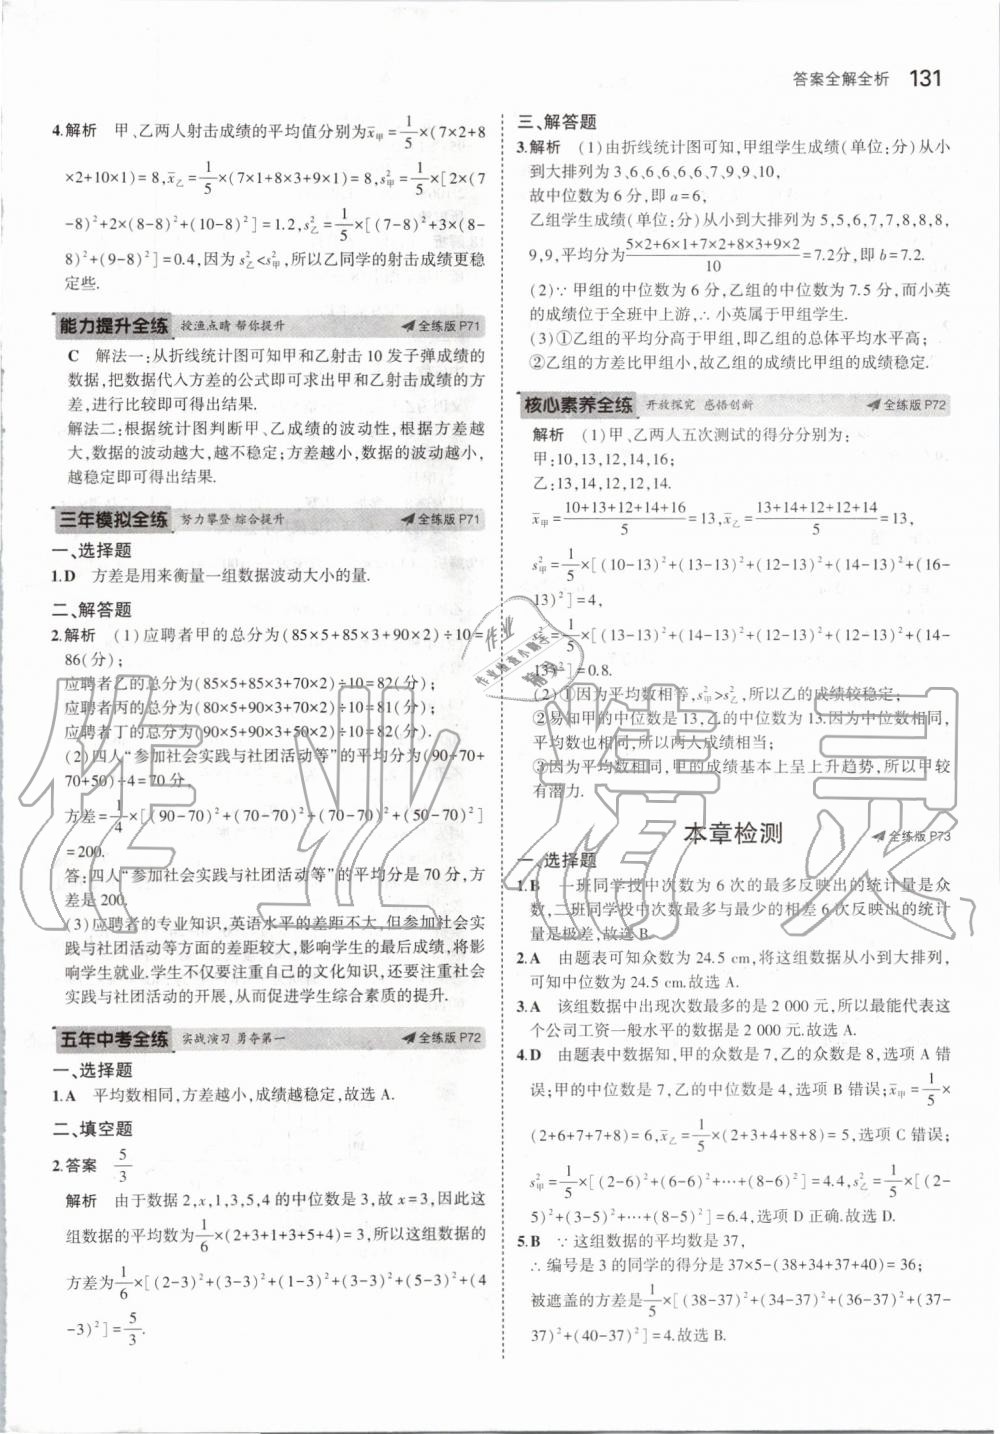 答案全解全析 131
4.解析 甲、乙两人射击成绩的平均值分别为x̄甲=1/5×(7×2+8
×2+10×1)=8,x̄乙=1/5×(7×1+8×3+9×1)=8,s²甲=1/5×[2×(7
-8)²+2×(8-8)²+(10-8)²]=1.2,s²乙=1/5×[(7-8)²+3×(8-
8)²+(9-8)²]=0.4,因为s²乙<s²甲,所以乙同学的射击成绩更稳
定些.
能力提升全练 授渔点睛 帮你提升 全练版P71
C 解法一:从折线统计图可知甲和乙射击10发子弹成绩的
数据,把数据代入方差的公式即可求出甲和乙射击成绩的方
差,进行比较即可得出结果.
解法二:根据统计图判断甲、乙成绩的波动性,根据方差越
大,数据的波动越大,越不稳定;方差越小,数据的波动越小,
越稳定即可得出结果.
三年模拟全练 努力攀登 综合提升 全练版P71
一、选择题
1.D 方差是用来衡量一组数据波动大小的量.
二、解答题
2.解析 (1)应聘者甲的总分为(85×5+85×3+90×2)÷10=
86(分);
应聘者乙的总分为(85×5+85×3+70×2)÷10=82(分);
应聘者丙的总分为(80×5+90×3+70×2)÷10=81(分);
应聘者丁的总分为(90×5+90×3+50×2)÷10=82(分).
(2)四人“参加社会实践与社团活动等”的平均分为(90+70+
70+50)÷4=70分,
方差=1/4×[(90-70)²+(70-70)²+(70-70)²+(50-70)²]
=200.
答:四人“参加社会实践与社团活动等”的平均分是70分,方
差是200.
(3)应聘者的专业知识,英语水平的差距不大,但参加社会实
践与社团活动等方面的差距较大,影响学生的最后成绩,将影
响学生就业.学生不仅要注重自己的文化知识,还要注重社会
实践与社团活动的开展,从而促进学生综合素质的提升.
五年中考全练 实战演习 勇夺第一 全练版P72
一、选择题
1.A 平均数相同,方差越小,成绩越稳定,故选A.
二、填空题
2.答案 5/3
解析 由于数据2,x,1,3,5,4的中位数是3,故x=3,因此这
组数据的平均数为1/6×(2+3+1+3+5+4)=3,所以这组数据的
方差为1/6×[(2-3)²+(3-3)²+(1-3)²+(3-3)²+(5-3)²+(4
-3)²]=5/3.
三、解答题
3.解析 (1)由折线统计图可知,甲组学生成绩(单位:分)从小
到大排列为3,6,6,6,6,6,7,9,9,10,
故中位数为6分,即a=6,
乙组学生成绩(单位:分)从小到大排列为5,5,6,7,7,8,8,8,
9,9,平均分为(5×2+6×1+7×2+8×3+9×2)/10=7.2分,即b=7.2.
(2)∵甲组的中位数为6分,乙组的中位数为7.5分,而小英
的成绩位于全班中上游,∴小英属于甲组学生.
(3)①乙组的平均分高于甲组,即乙组的总体平均水平高;
②乙组的方差比甲组小,故乙组的成绩比甲组的成绩稳定.
核心素养全练 开放探究 感悟创新 全练版P72
解析 (1)甲、乙两人五次测试的得分分别为:
甲:10,13,12,14,16;
乙:13,14,12,12,14.
x̄甲=(10+13+12+14+16)/5=13,x̄乙=(13+14+12+12+14)/5=13,
s²甲=1/5×[(10-13)²+(13-13)²+(12-13)²+(14-13)²+(16-
13)²]=4,
s²乙=1/5×[(13-13)²+(14-13)²+(12-13)²+(12-13)²+(14-
13)²]=0.8.
(2)①因为平均数相等,s²甲>s²乙,所以乙的成绩较稳定;
②易知甲的中位数是13,乙的中位数为13.因为中位数相同,
平均数也相同,所以两人成绩相当;
③因为平均数相同,甲的成绩基本上呈上升趋势,所以甲较
有潜力.
本章检测 全练版P73
一、选择题
1.B 一班同学投中次数为6次的最多反映出的统计量是众
数,二班同学投中次数最多与最少的相差6次反映出的统计
量是极差,故选B.
2.A 由题表可知众数为24.5 cm,将这组数据从小到大排列,
可知中位数为24.5 cm.故选A.
3.A 该组数据中出现次数最多的是2 000元,所以最能代表这
个公司工资一般水平的数据是2 000元.故选A.
4.D 由题表中数据知,甲的众数是7,乙的众数是8,选项A错
误;甲的中位数是7,乙的中位数是4,选项B错误;x̄甲=1/5×
(2+6+7+7+8)=6,x̄乙=1/5×(2+3+4+8+8)=5,选项C错误;
s²甲=1/5×[(2-6)²+(6-6)²+…+(8-6)²]=4.4,s²乙=1/5×[(2-
5)²+(3-5)²+…+(8-5)²]=6.4,选项D正确.故选D.
5.B ∵这组数据的平均数是37,
∴编号是3的同学的得分是37×5-(38+34+37+40)=36;
被遮盖的方差是1/5×[(38-37)²+(34-37)²+(36-37)²+(37-
37)²+(40-37)²]=4.故选B.
作业精灵